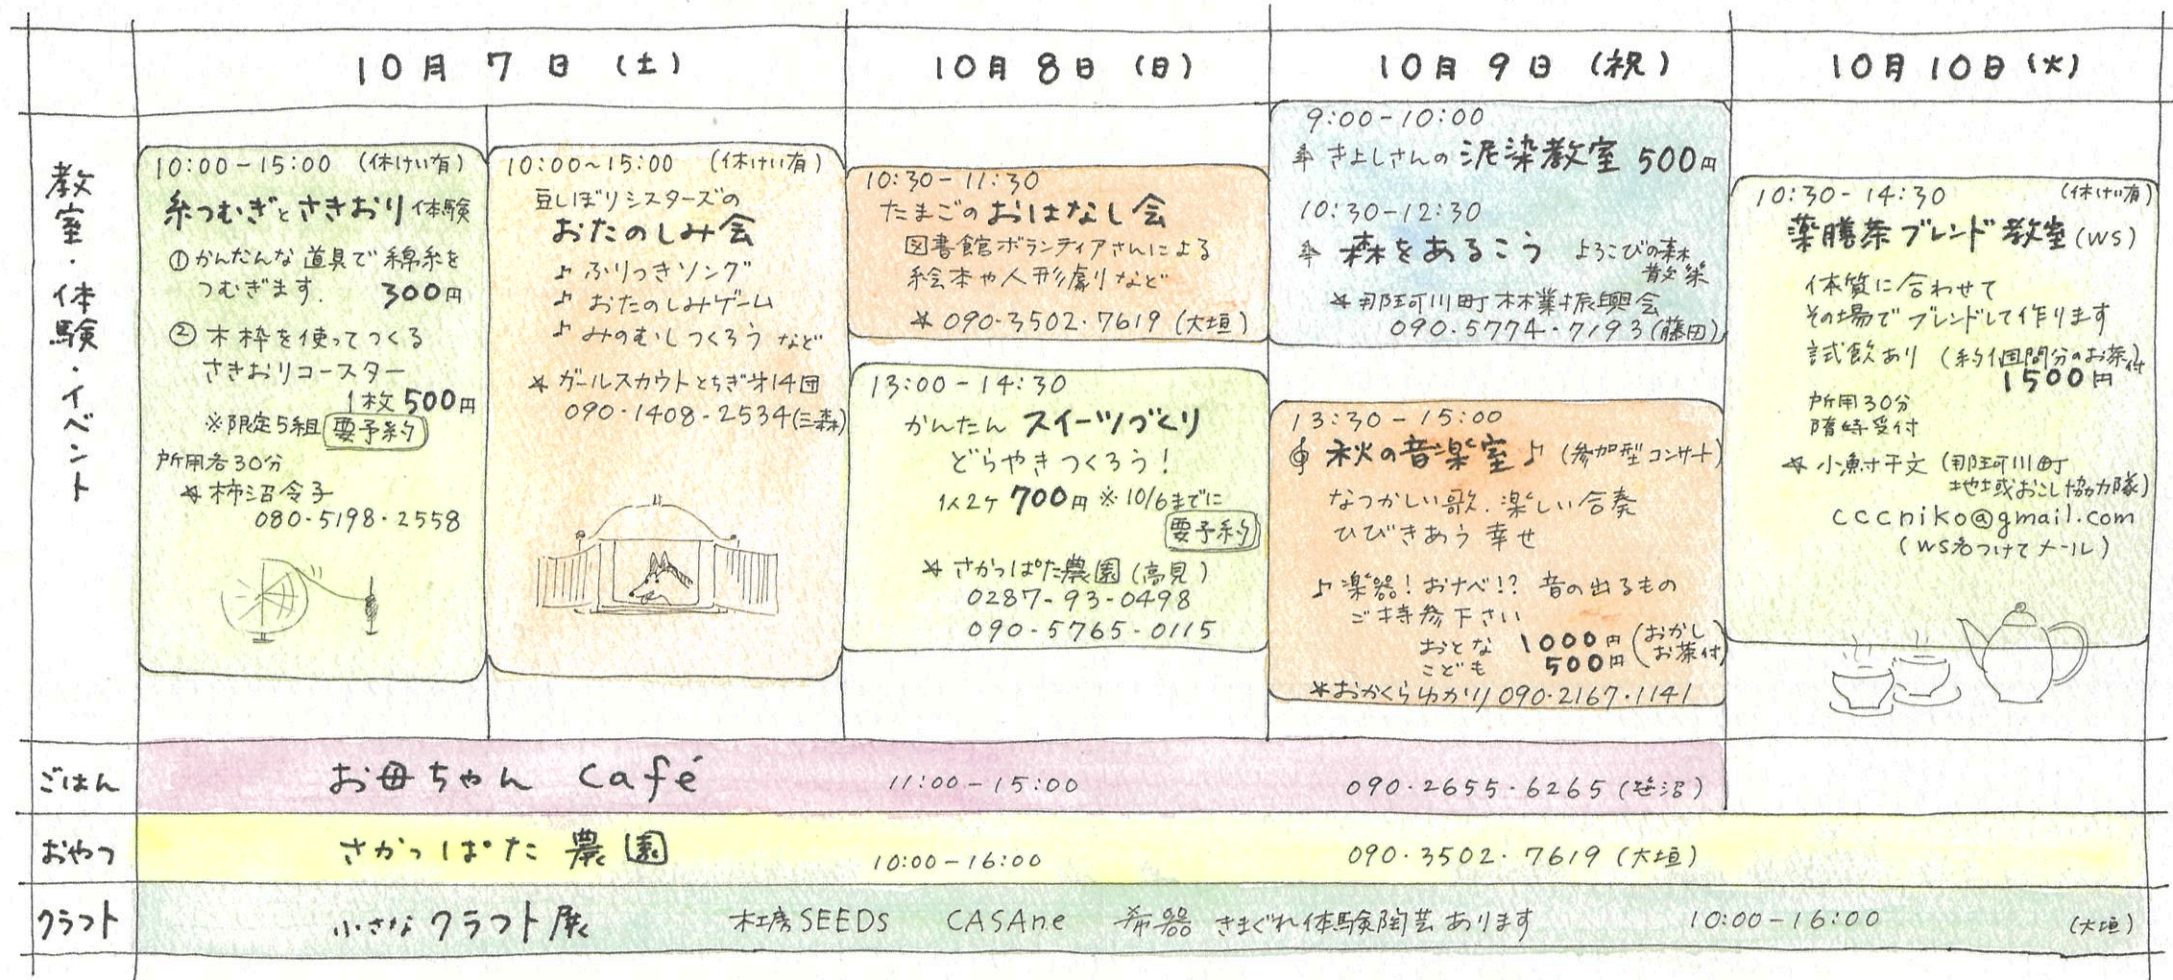 10月7日(土)
10月8日(日)
10月9日(祝)
10月10日(火)
教室・体験・イベント
10:00-15:00 (休けい有)
糸つむぎとさきおり体験
①かんたんな道具で綿糸を
つむぎます. 300円
②木枠を使ってつくる
さきおりコースター
1枚500円
※限定5組 要予約
所用各30分
☆柿沼令子
080・5198・2558
10:00~15:00 (休けい有)
豆しぼりシスターズの
おたのしみ会
♪ふりつきソング
♪おたのしみゲーム
♪みのむしつくろう など
☆ガールスカウトとちぎ㐧14団
090・1408-2534(三森)
10:30-11:30
たまごのおはなし会
図書館ボランティアさんによる
絵本や人形劇りなど
☆090・3502・7619(大垣)
13:00-14:30
かんたん スイーツづくり
どらやきつくろう!
1人2ケ 700円 ※10/6までに
要予約
☆さかっぱた農園(高見)
0287-93-0498
090-5765-0115
9:00-10:00
きよしさんの 泥染教室 500円
10:30-12:30
森をあるこう よろこびの森
散策
☆那珂川町林業振興会
090・5774・7193(藤田)
13:30-15:00
秋の音楽室♪(参加型コンサート)
なつかしい歌、楽しい合奏
ひびきあう幸せ
♪楽器!おナベ!?音の出るもの
ご持参下さい
おとな 1000円(おかし
こども 500円 お茶付)
☆おかくらゆかり090・2167・1141
10:30-14:30 (休けい有)
薬膳茶ブレンド教室(WS)
体質に合わせて
その場でブレンドして作ります
試飲あり(約1週間分のお茶付)
1500円
所用30分
随時受付
☆小鮒千文(那珂川町
地域おこし協力隊)
cccniko@gmail.com
(WS名つけてメール)
ごはん
お母ちゃん Café 11:00-15:00 090・2655・6265(笹沼)
おやつ
さかっぱた農園 10:00-16:00 090・3502・7619(大垣)
クラフト
小さなクラフト展 木工房SEEDS CASAne 希器 きまぐれ体験陶芸あります 10:00-16:00 (大垣)